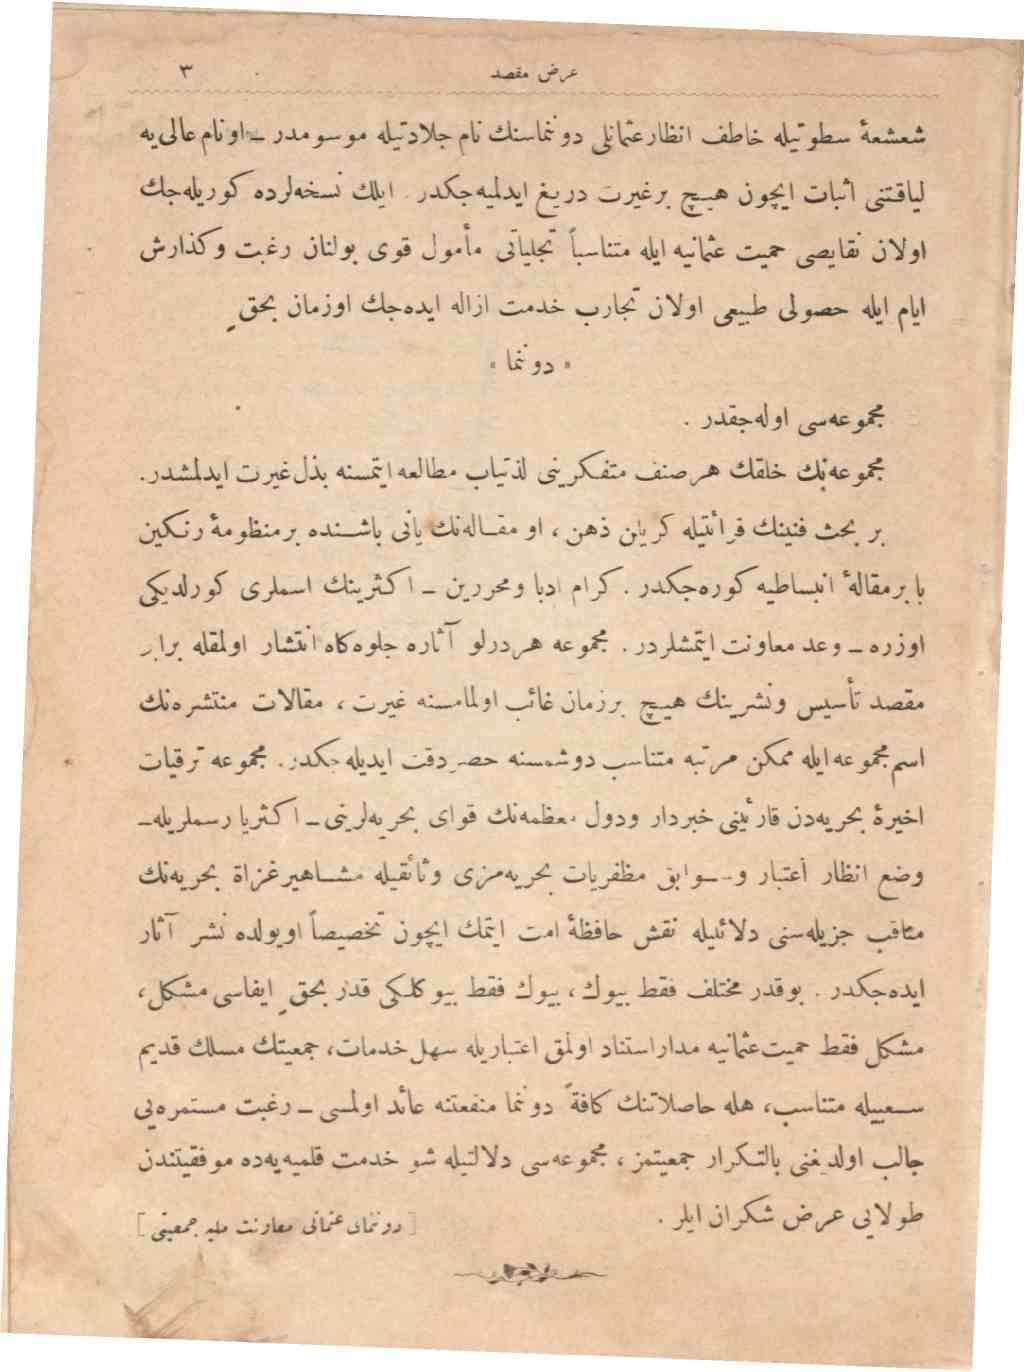 عرض مقصد
٣
شعشعهٔ سطوتیله خاطف انظار عثمانلی دوننماسنك نام جلادتیله موسومدر ــ او نام عالی‌یه
لیاقتنی اثبات ایچون هیچ برغیرت دریغ ایدلمیه‌جكدر . ایلك نسخه‌لرده كوریله‌جك
اولان نقایصی حمیت عثمانیه ایله متناسباً تجلیاتی مأمول قوی بولنان رغبت و كذارش
ایام ایله حصولی طبیعی اولان تجارب خدمت ازاله ایده‌جك اوزمان بحقٍ
« دوننما »
مجموعه‌سی اوله‌جقدر .
مجموعه‌نك خلقك هرصنف متفكرینی لذتیاب مطالعه ایتمسنه بذل غیرت ایدلمشدر.
بر بحث فنینك قرائتیله كریلن ذهن ، او مقــاله‌نك یانی باشــنده برمنظومهٔ رنكین
یا برمقالهٔ انبساطیه كوره‌جكدر . كرام ادبا ومحررین ــ اكثرینك اسملری كورلدیكی
اوزره ــ وعد معاونت ایتمشلردر . مجموعه هردرلو آثاره جلوه‌كاه انتشار اولمقله برابر
مقصد تأسیس ونشرینك هیچ برزمان غائب اولمامسنه غیرت ، مقالات منتشره‌نك
اسم مجموعه ایله ممكن مرتبه متناسب دوشمسنه حصر دقت ایدیله‌جكدر. مجموعه ترقیات
اخیرهٔ بحریه‌دن قارئینی خبردار ودول معظمه‌نك قوای بحریه‌لرینی ــ اكثریا رسملریله ــ
وضع انظار اعتبار وســوابق مظفریات بحریه‌مزی وثائقیله مشــاهیر غزاة بحریه‌نك
مناقب جزیله‌سنی دلائیله نقش حافظهٔ امت ایتمك ایچون تخصیصاً اویولده نشر آثار
ایده‌جكدر . بوقدر مختلف فقط بیوك ، بیوك فقط بیوكلكی قدر بحقٍ ایفاسی مشكل ،
مشكل فقط حمیت عثمانیه مدار استناد اولمق اعتباریله سهل خدمات، جمعیتك مسلك قدیم
ســعییله متناسب، هله حاصلاتنك كافةً دوننما منفعتنه عائد اولمسی ــ رغبت مستمره‌یی
جالب اولدیغنی بالتكرار جمعیتمز ، مجموعه‌سی دلالتیله شو خدمت قلمیه‌یه‌ده موفقیتندن
طولایی عرض شكران ایلر .
[ دوننمای عثمانی معاونت ملیه جمعیتی ]